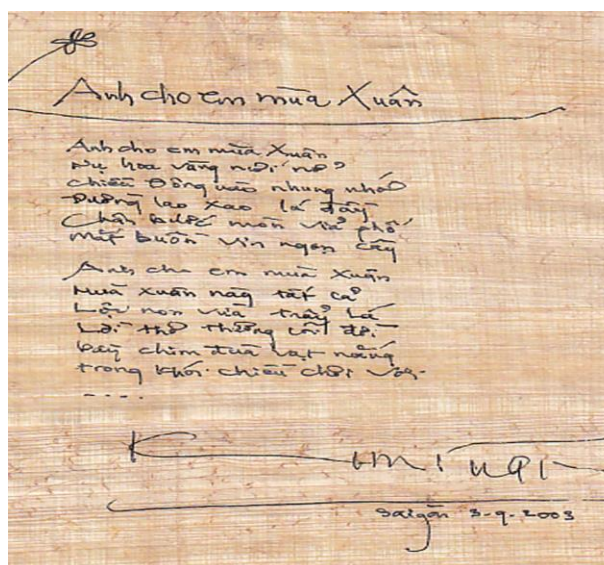 Anh cho em mùa Xuân
Anh cho em mùa Xuân
Nụ hoa vàng mới nở
chiều Đông nào nhung nhớ
Đường lao xao lá đầy
Chân bước mòn vỉa phố
mắt buồn vin ngọn cây
Anh cho em mùa Xuân
Mùa Xuân này tất cả
Lộc non vừa trẩy lá
Lời thơ thương cõi đời
bầy chim đùa vạt nắng
trong khói chiều chơi vơi
....
Saigon 3-9-2003